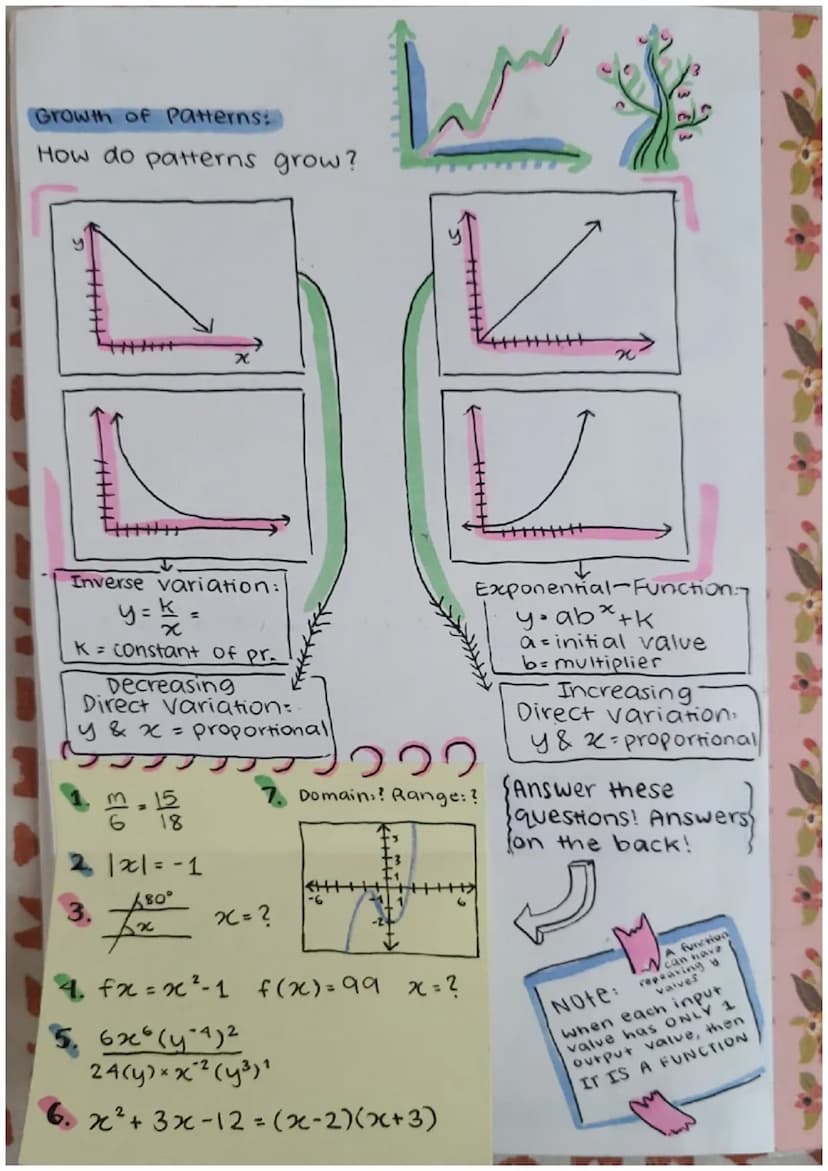 Growth of Patterns:
How do patterns grow?
y
x
y
x
Inverse variation:
y = k/x =
K = constant of pr.
Decreasing
Direct Variation:
y & x = proportional
Exponential-Function:
y = ab^x + k
a = initial value
b = multiplier
Increasing
Direct variation:
y & x = proportional
1. m/6 = 15/18
2. |x| = -1
3. 80° x x = ?
4. fx = x² - 1 f(x) = 99 x = ?
5. 6x⁶(y⁻⁴)²
24(y) × x⁻²(y³)¹
6. x² + 3x - 12 = (x-2)(x+3)
7. Domain:? Range:?
5
3
1
-6 -1 1 6
-2
{Answer these
questions! Answers
on the back!}
Note:
A function
can have
repeating y
values
When each input
value has ONLY 1
output value, then
IT IS A FUNCTION